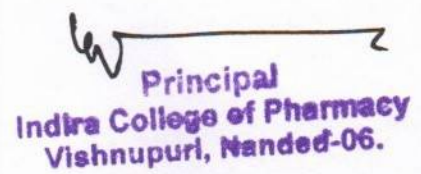 Principal
Indira College of Pharmacy
Vishnupuri, Nanded-06.